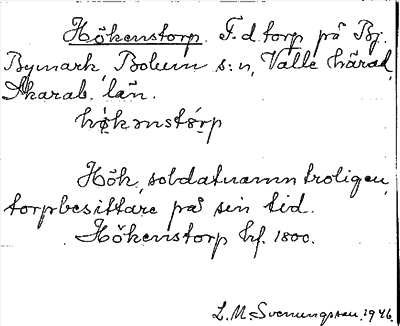 Hökenstorp. F.d. torp på Bj.
Bymark, Bolum s:n, Valle härad,
Skarab. län.
hø̀kənstɔ́rp
Hök, soldatnamn troligen,
torpbesittare på sin tid.
Hökenstorp hf. 1800.
L. M. Svenungsson. 1946.